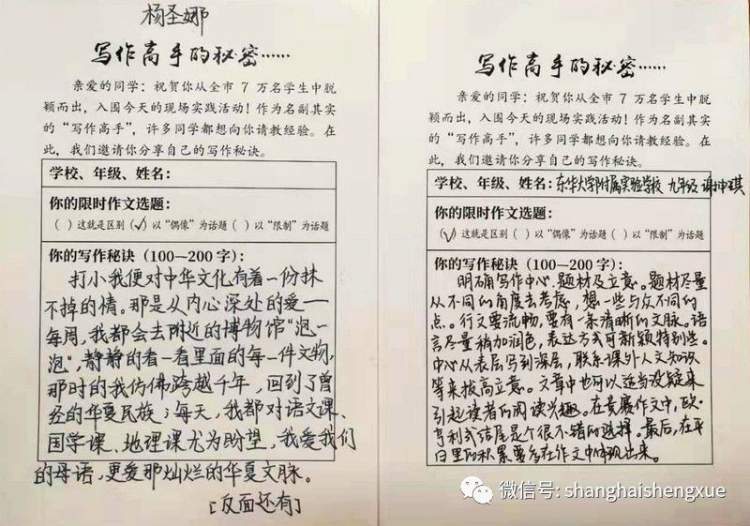 杨圣娜
写作高手的秘密……
亲爱的同学：祝贺你从全市 7 万名学生中脱
颖而出，入围今天的现场实践活动！作为名副其实
的“写作高手”，许多同学都想向你请教经验。在
此，我们邀请你分享自己的写作秘诀。
学校、年级、姓名：
你的限时作文选题：
( ) 这就是区别 (✓) 以“偶像”为话题 ( ) 以“限制”为话题
你的写作秘诀（100—200 字）：
打小我便对中华文化有着一份抹
不掉的情。那是从内心深处的爱——
每周，我都会去附近的博物馆“泡一
泡”，静静的看一看里面的每一件文物，
那时的我仿佛跨越千年，回到了曾
经的华夏民族；每天，我都对语文课、
国学课、地理课尤为盼望，我爱我们
的母语，更爱那灿烂的华夏文脉。
[反面还有]
写作高手的秘密……
亲爱的同学：祝贺你从全市 7 万名学生中脱
颖而出，入围今天的现场实践活动！作为名副其实
的“写作高手”，许多同学都想向你请教经验。在
此，我们邀请你分享自己的写作秘诀。
学校、年级、姓名：东华大学附属实验学校 九年级 谢坤琪
你的限时作文选题：
(✓) 这就是区别 ( ) 以“偶像”为话题 ( ) 以“限制”为话题
你的写作秘诀（100—200 字）：
明确写作中心、题材及立意。题材尽量
从不同的角度去考虑，想一些与众不同的
点。行文要流畅，要有一条清晰的文脉。语
言尽量稍加润色，表达方式可新颖特别些。
中心从表层写到深层，联系课外人文知识
等来拔高立意。文章中也可以适当设疑来
引起读者的阅读兴趣。在竞赛作文中，欧·
亨利式结尾是个很不错的选择。最后，在平
日里的积累要多在作文中体现出来。
微信号: shanghaishengxue